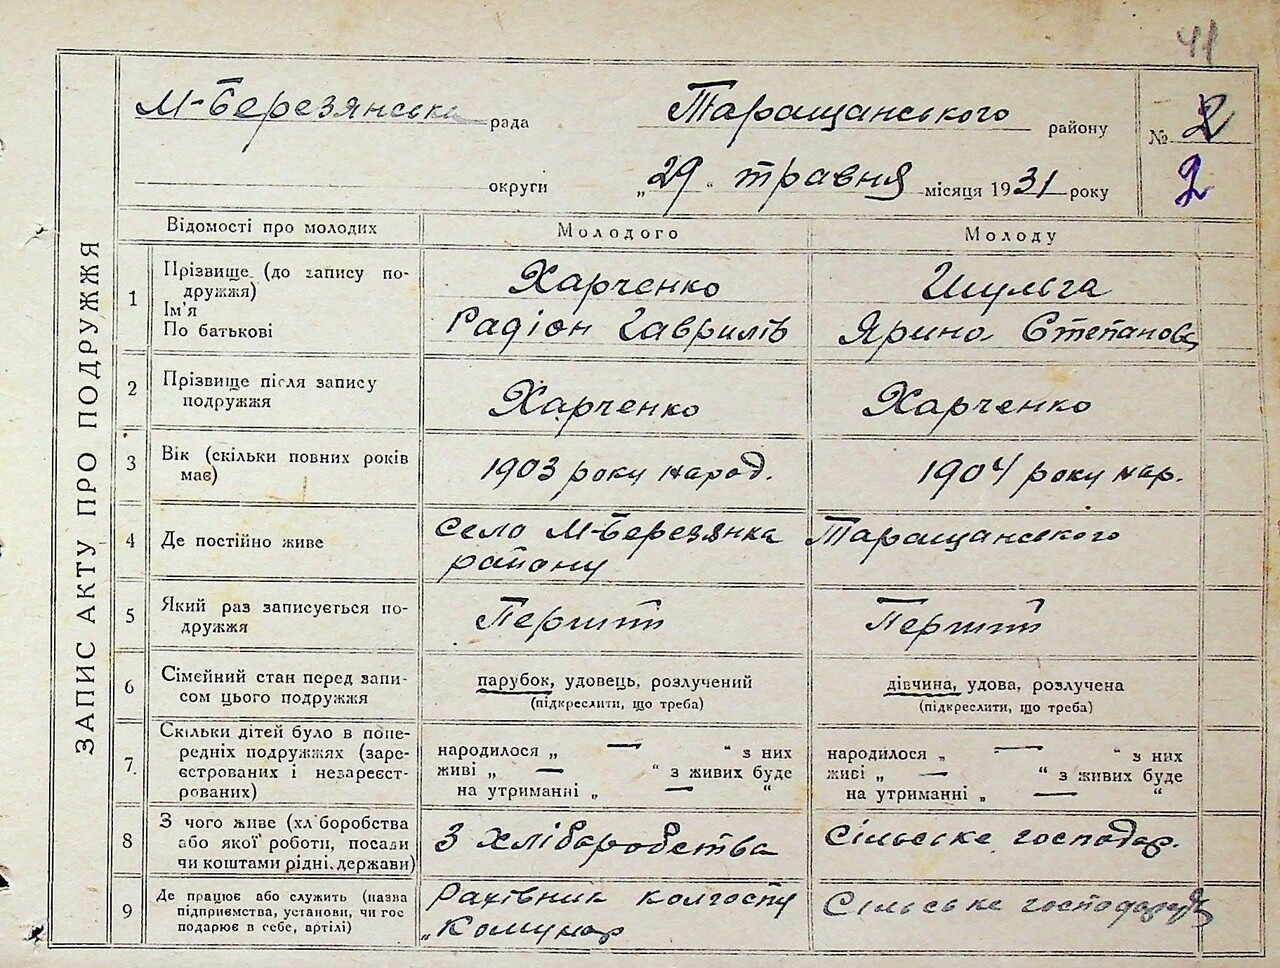 41
М-Березянська рада Таращанського району № 2
округи „29" травня місяця 1931 року 2
ЗАПИС АКТУ ПРО ПОДРУЖЖЯ
Відомості про молодих Молодого Молоду
1 Прізвище (до запису по-
дружжя) Харченко Шульга
Ім'я
По батькові Радіон Гаврилів Ярина Степанова
2 Прізвище після запису
подружжя Харченко Харченко
3 Вік (скільки повних років
має) 1903 року народ. 1904 року нар.
4 Де постійно живе село М-Березянка Таращанського
району
5 Який раз записується по-
дружжя Перший Перший
6 Сімейний стан перед запи-
сом цього подружжя парубок, удовець, розлучений дівчина, удова, розлучена
(підкреслити, що треба) (підкреслити, що треба)
7 Скільки дітей було в попе-
редніх подружжях (заре-
єстрованих і незареєст-
рованих) народилося „ — “ з них народилося „ — “ з них
живі „ — “ з живих буде живі „ — “ з живих буде
на утриманні „ — “ на утриманні „ — “
8 З чого живе (хліборобства
або якої роботи, посади
чи коштами рідні, держави) З хліборобства Сільське господар.
9 Де працює або служить (назва
підприємства, установи, чи гос
подарює в себе, артілі) Рахівник колгоспу Сільське
„Комунар